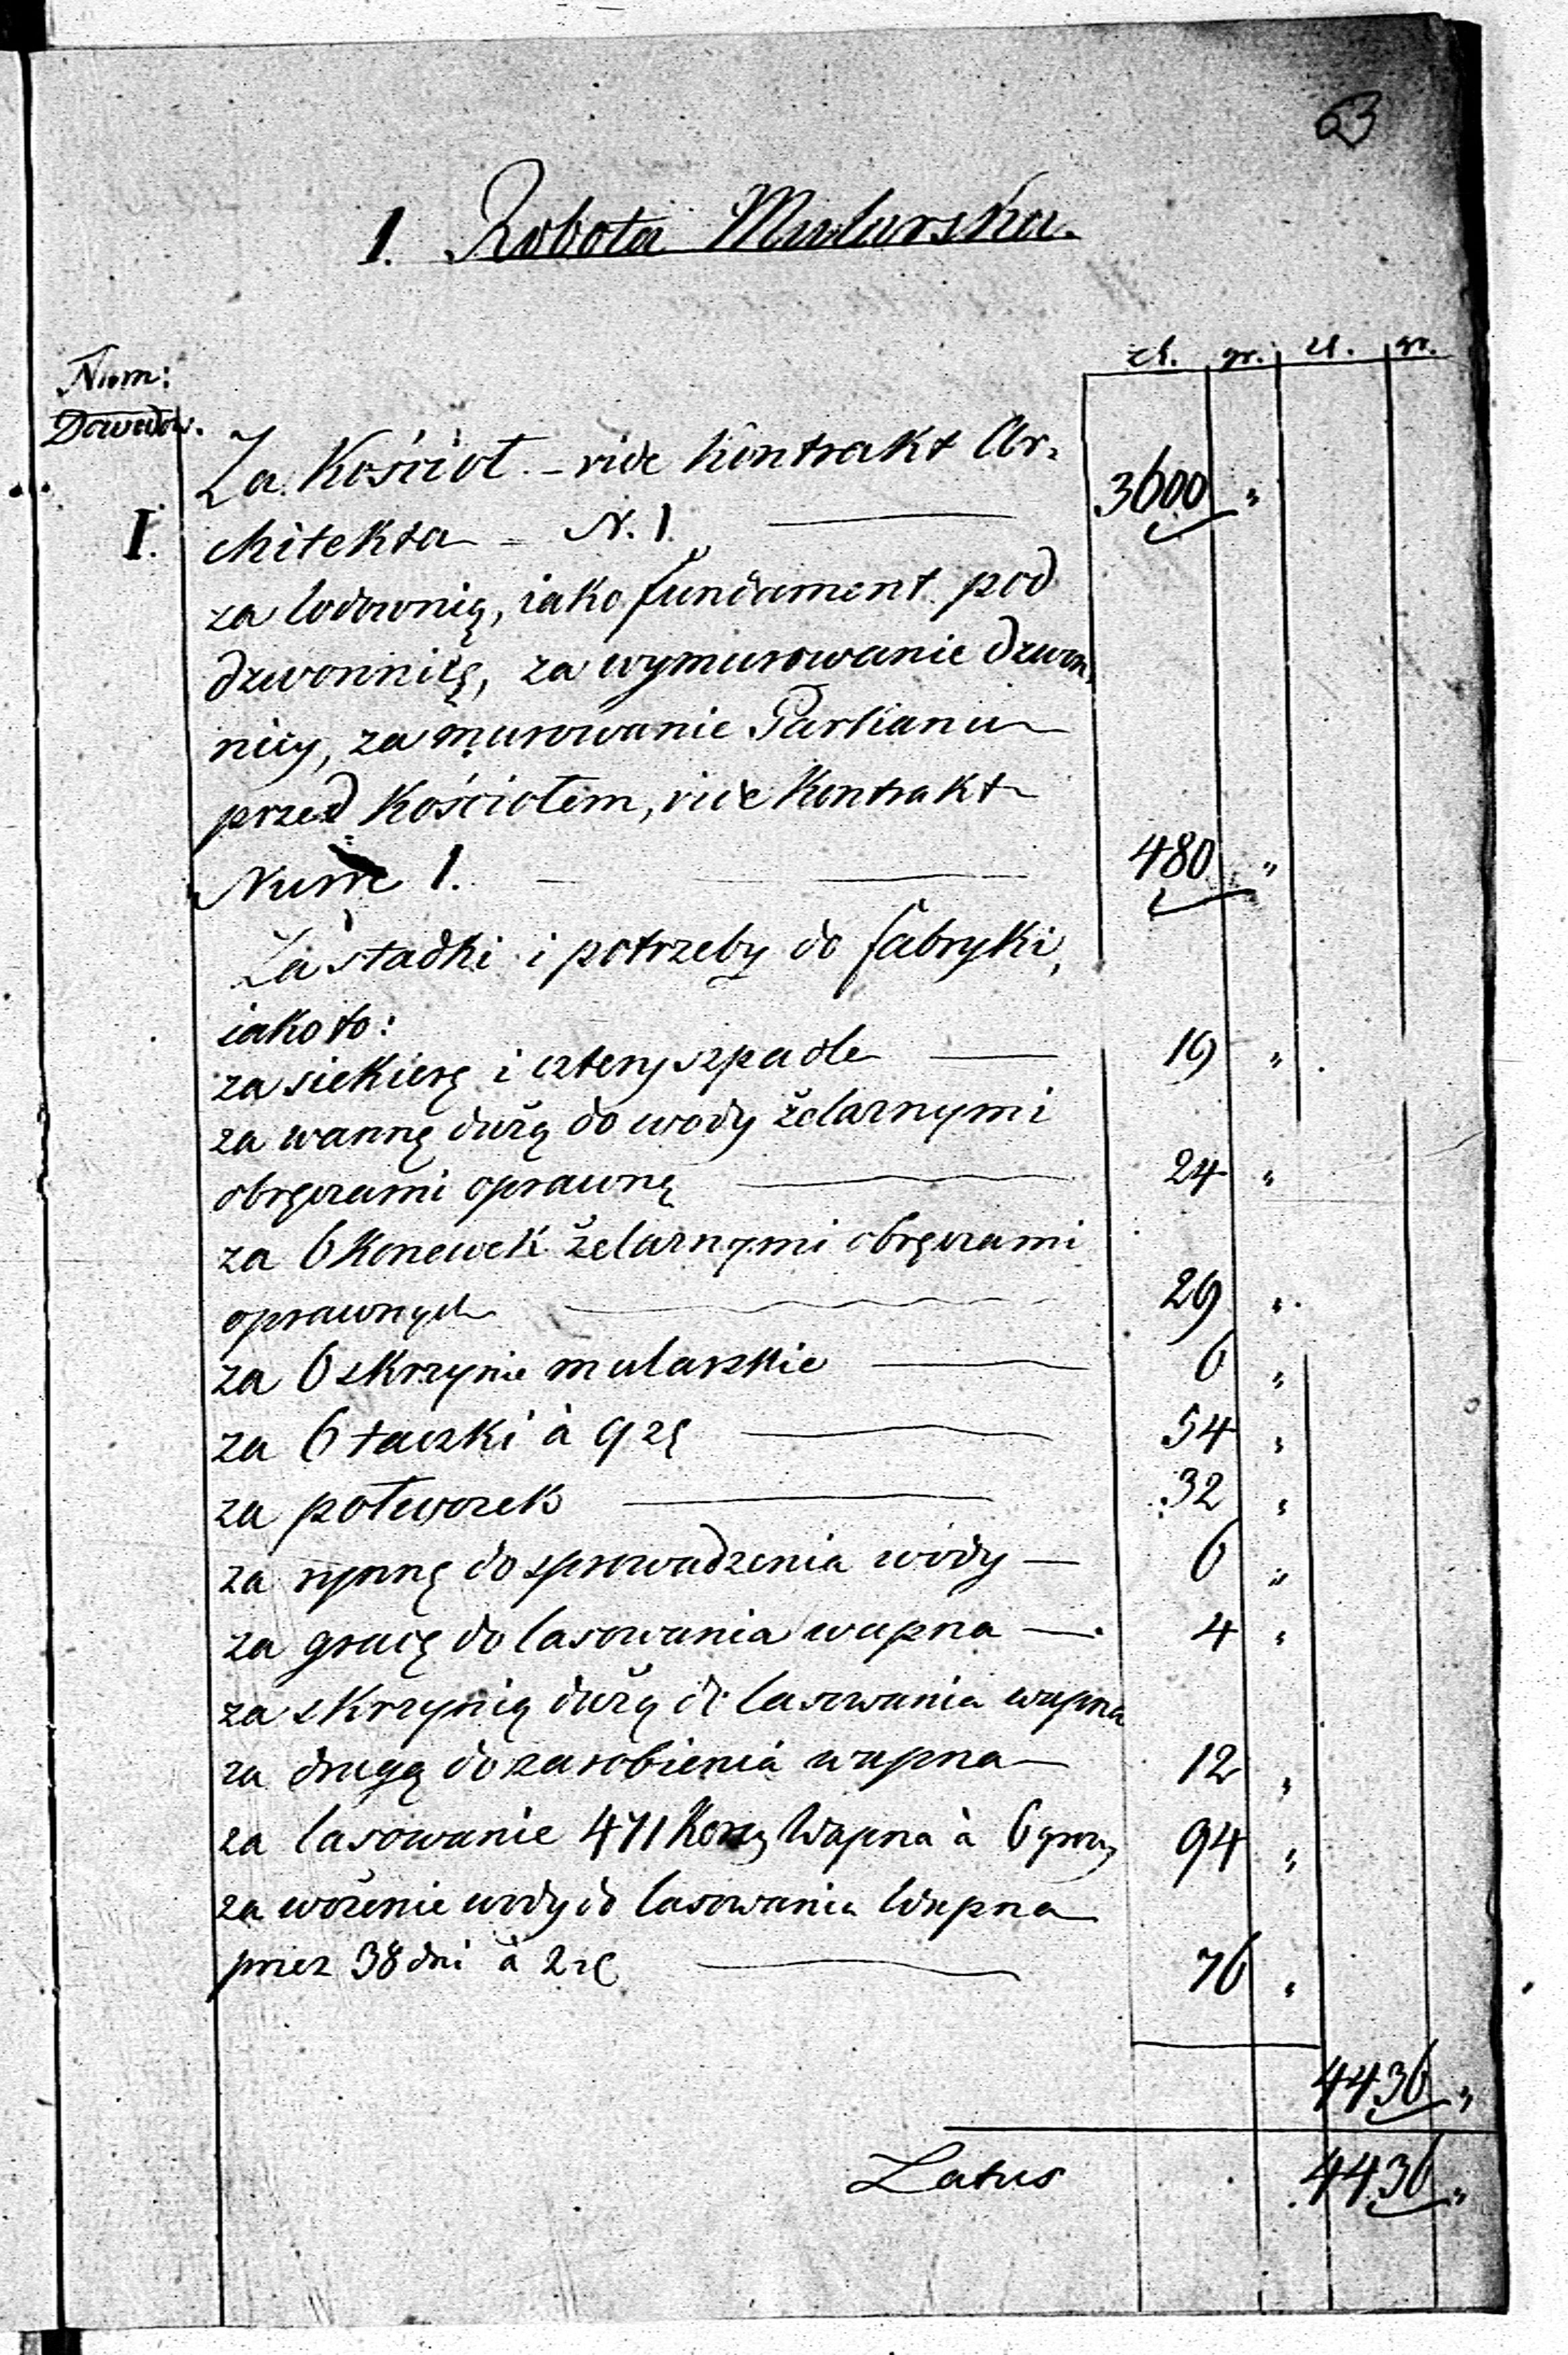 63
I. Robota Mularska.
Num: zł. gr. zł. gr.
Dowodów.
Za Kościoł. – vide Kontrakt Ar-
I. chitekta – N. 1. 3600 "
za lodownią, iako fundament pod
dzwonnicę, za wymurowanie dzwon
nicy, za murowanie Parkanu
przed Kościołem, vide Kontrakt
Num 1. 480 "
Za statki i potrzeby do fabryki,
iakoto:
za siekierę i cztery szpadle 19 "
za wannę dużą do wody żelaznymi
obręczami oprawną 24 "
za 6 Konewek żelaznymi obręczami
oprawnych 29 "
za 6 skrzynie mularskie 6 "
za 6 taczki à 9 zł 54 "
za połwozek 32 "
za rynnę do sprowadzenia wody 6 "
za gracę do lasowania wapna 4 "
za skrzynią dużą do lasowania wapna
za drugą do zarobienia wapna 12 "
za lasowanie 471 Korcy Wapna à 6 groszy 94 "
za wożenie wody do lasowania Wapna
przez 38 dni à 2 zł 76 "
4436 "
Latus 4436 "